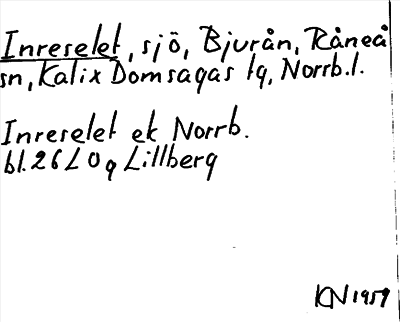 Inreselet, sjö, Bjurån, Råneå
sn, Kalix Domsagas tg, Norrb.l.
Inreselet ek Norrb.
bl. 26 L 0 q Lillberg
KN 1959